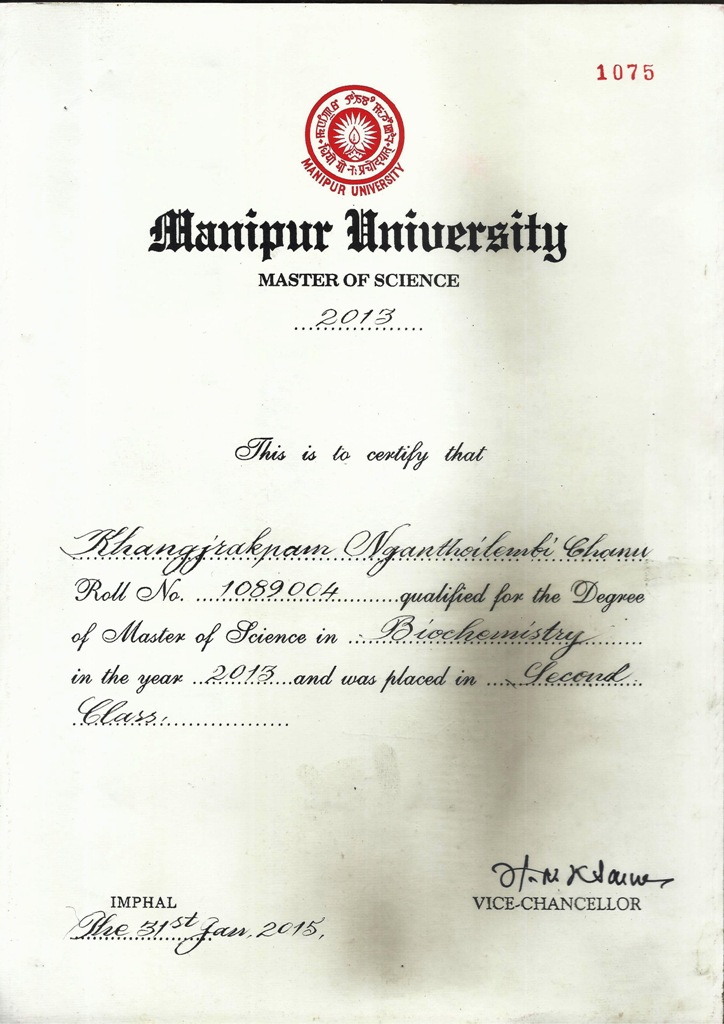 1075
MANIPUR UNIVERSITY
Manipur University
MASTER OF SCIENCE
2013
This is to certify that
Khangjrakpam Nganthoilembi Chanu
Roll No. 1089004 qualified for the Degree
of Master of Science in Biochemistry
in the year 2013 and was placed in Second
Class.
IMPHAL
VICE-CHANCELLOR
The 31st Jan, 2015,